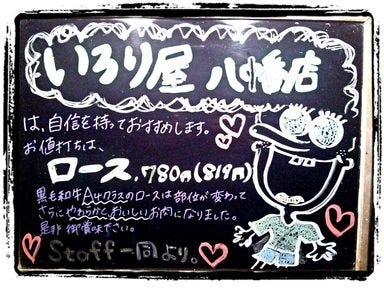 いろり屋 八幡店
は、自信を持っておすすめします。
お値打ちは、
ロース、780円(819円)
黒毛和牛A4クラスのロースは部位が変わって
さらにやわらかく、おいしいお肉になりました。
是非 御賞味下さい。
Staff一同より。